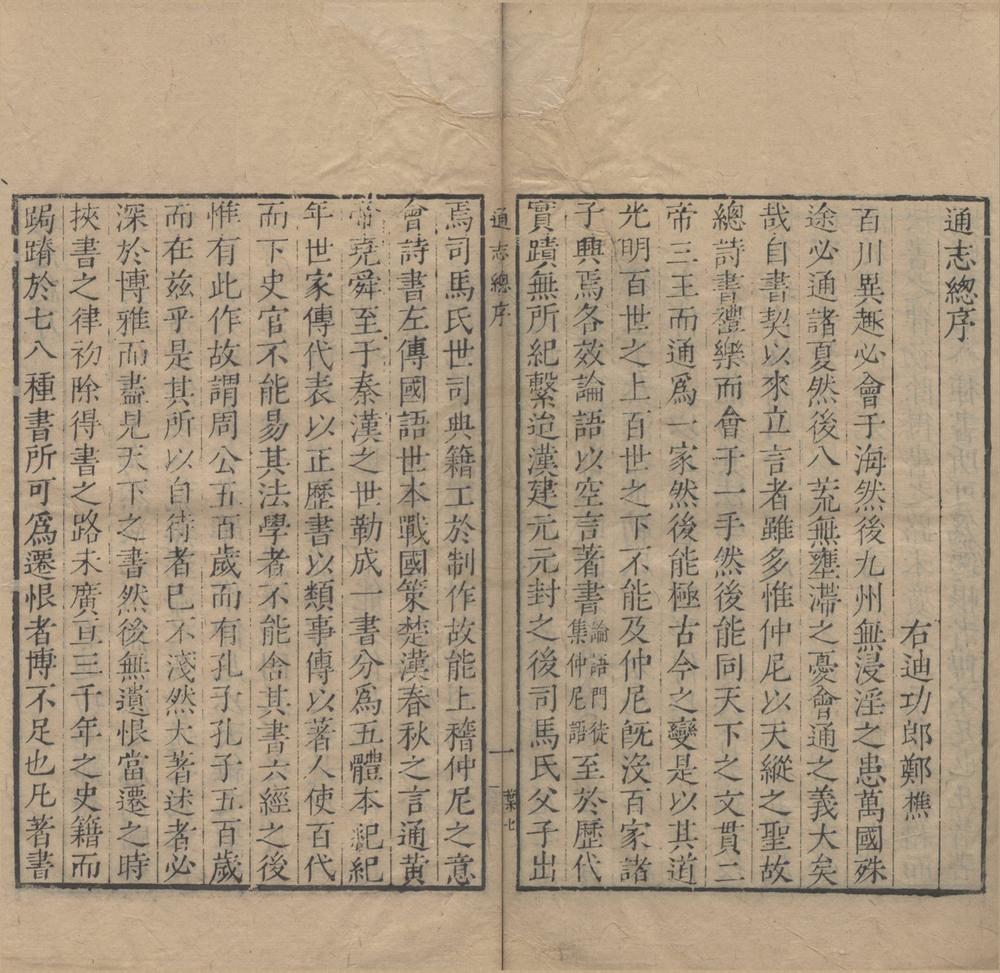 通志總序
右迪功郎鄭樵
百川異趨必會于海然後九州無浸淫之患萬國殊
途必通諸夏然後八荒無壅滯之憂會通之義大矣
哉自書契以來立言者雖多惟仲尼以天縱之聖故
總詩書禮樂而會于一手然後能同天下之文貫二
帝三王而通爲一家然後能極古今之變是以其道
光明百世之上百世之下不能及仲尼旣沒百家諸
子興焉各效論語以空言著書論語門徒集仲尼語至於歷代
實蹟無所紀繫迨漢建元元封之後司馬氏父子出
通志總序
一
葉七
焉司馬氏世司典籍工於制作故能上稽仲尼之意
會詩書左傳國語世本戰國策楚漢春秋之言通黃
帝堯舜至于秦漢之世勒成一書分爲五體本紀紀
年世家傳代表以正歷書以類事傳以著人使百代
而下史官不能易其法學者不能舍其書六經之後
惟有此作故謂周公五百歲而有孔子孔子五百歲
而在茲乎是其所以自待者已不淺然大著述者必
深於博雅而盡見天下之書然後無遺恨當遷之時
挾書之律初除得書之路未廣亘三千年之史籍而
跼蹐於七八種書所可爲遷恨者博不足也凡著書